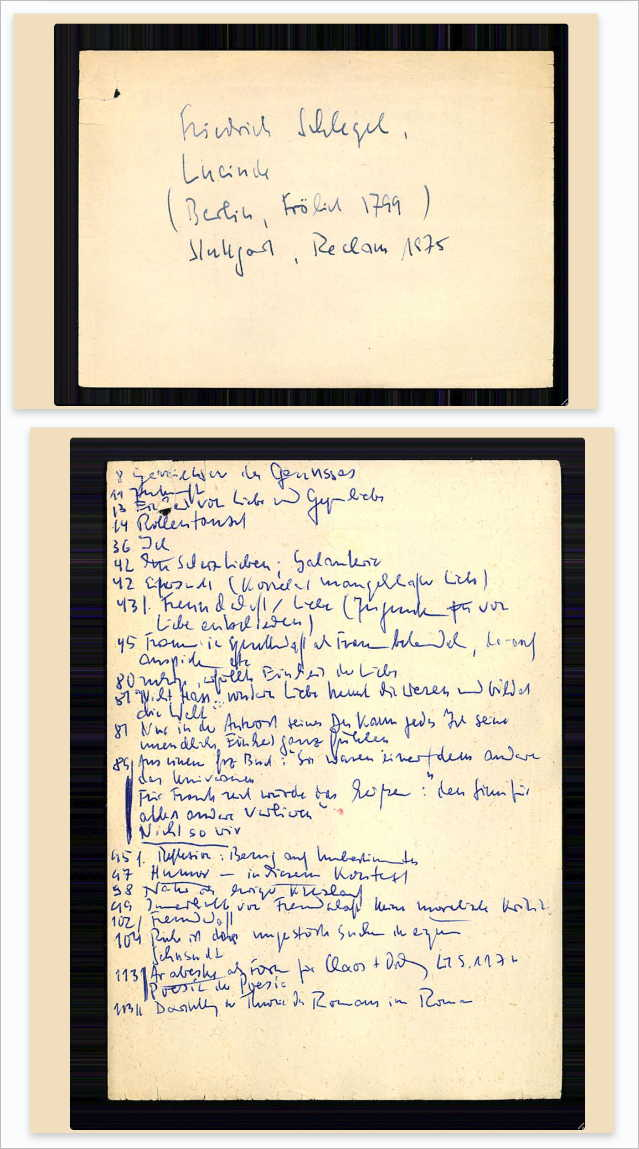 Friedrich Schlegel,
Lucinde
(Berlin, Frölich 1799)
Stuttgart, Reclam 1975
8 des Genusses
11
13 von Liebe und Gegenliebe
14 Rollentausch
36 Ich
42 Galanterie
42 Eifersucht (Korrelat mangelhafter Liebe)
43f. Freundschaft / Liebe ( vor
Liebe entschieden)
45 Frauen in Gesellschaft als Frauen behandeln, darauf
anspielen etc
80 Einheit der Liebe
81 Nicht Hass, sondern Liebe trennt die Wesen und bildet
die Welt
81 Nur in der Antwort seines Du kann jedes Ich seine
unendliche Einheit ganz fühlen
89 Aus einem frz Buch: "Sie waren einer dem andern
das Universum
Für Frank reich würde das heißen: "den Sinn für
alles andere verlieren"
Nicht so wir
95f. Reflexion: Bezug auf Unbestimmtes
97 Humor – in diesem Kontext
98 Nähe als Kreislauf
99 Innerhalb von Freundschaft keine moralische Kritik
102f Freundschaft
104 Ruhe ist dass ungestörte Suchen in eigen
Sehnsucht
113f Arabeske als Form für Chaos + S. 117
Poesie der Poesie
Darstellung der Theorie des Romans im Roman